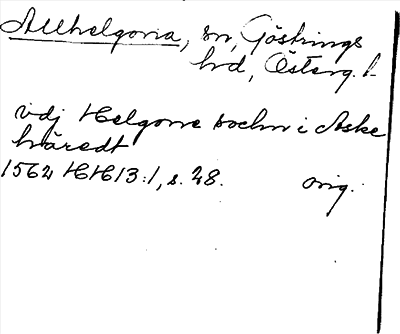 Allhelgona, sn, Göstrings
hd, Österg. l.
vdj Helgone sochn i Aske
häredt
1562 HH 13:1, s. 28. orig.